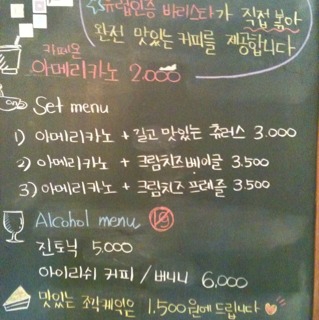 유럽인증 바리스타가 직접 볶아
완전 맛있는 커피를 제공합니다
카페온
아메리카노 2.000
Set menu
1) 아메리카노 + 길고 맛있는 츄러스 3.000
2) 아메리카노 + 크림치즈베이글 3.500
3) 아메리카노 + 크림치즈 프레즐 3.500
Alcohol menu 19
진토닉 5.000
아이리쉬 커피 / 버니니 6,000
맛있는 조각케익은 1.500원에 드립니다